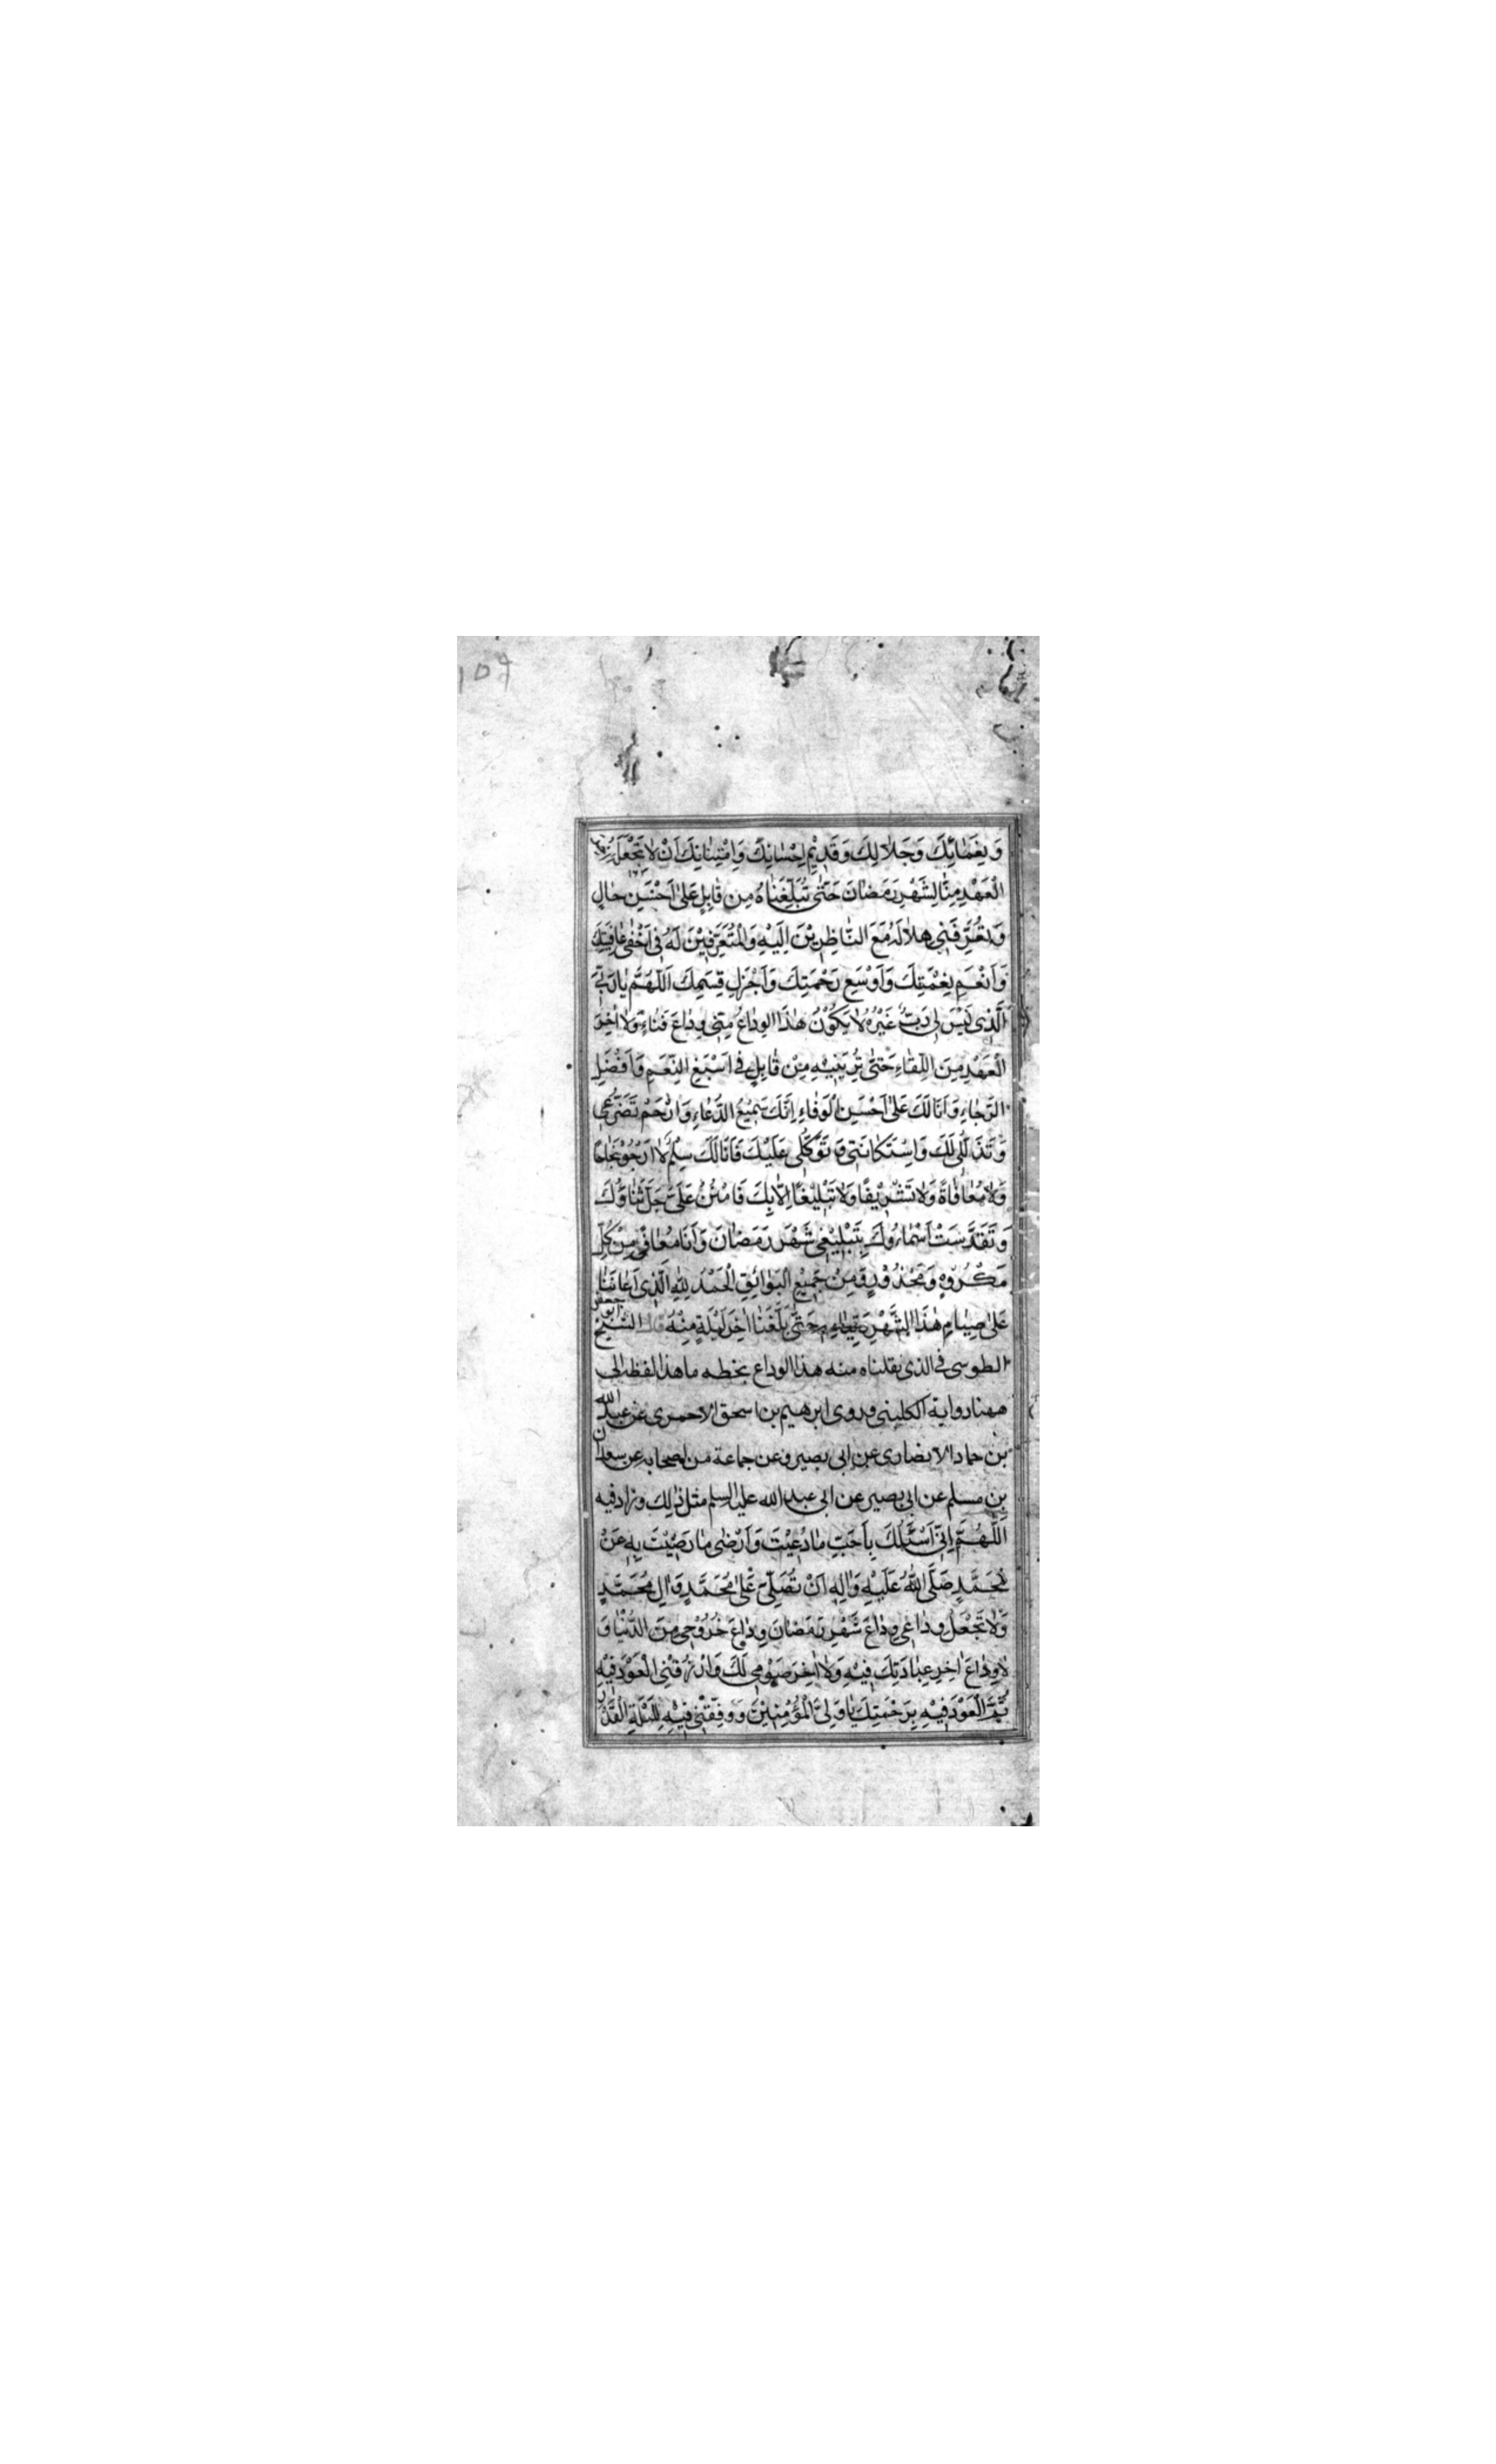 وَبِنَعْمَائِكَ وَجَلَالِكَ وَقَدِيْمِ اِحْسَانِكَ وَامْتِنَانِكَ اَنْ لَا تَجْعَلَهُ اٰخِرَ
الْعَهْدِ مِنَّا لِشَهْرِ رَمَضَانَ حَتّٰى تُبَلِّغَنَاهُ مِنْ قَابِلٍ عَلىٰ اَحْسَنِ حَالٍ
وَتُعَرِّفَنِى هِلَالَهُ مَعَ النَّاظِرِيْنَ اِلَيْهِ وَالْمُتَعَرِّفِيْنَ لَهُ فِى اَعْفٰى عَافِيَتِكَ
وَاَنْعَمِ نِعْمَتِكَ وَاَوْسَعِ رَحْمَتِكَ وَاَجْزَلِ قِسَمِكَ اَللّٰهُمَّ يَا رَبِّيَ
الَّذِى لَيْسَ لِى رَبٌّ غَيْرُهُ لَا يَكُوْنُ هٰذَا الوِدَاعُ مِنِّى وِدَاعَ فَنَاءٍ وَلَا اٰخِرَ
الْعَهْدِ مِنَ اللِّقَاءِ حَتّٰى تُرِيَنِيْهِ مِنْ قَابِلٍ فِى اَسْبَغِ النِّعَمِ وَاَفْضَلِ
الرَّجَاءِ وَاَنَا لَكَ عَلىٰ اَحْسَنِ الْوَفَاءِ اِنَّكَ سَمِيْعُ الدُّعَاءِ وَارْحَمْ تَضَرُّعِى
وَتَذَلُّلِى لَكَ وَاسْتِكَانَتِى وَتَوَكُّلِى عَلَيْكَ فَاَنَا لَكَ سِلْمٌ لَا اَرْجُوْ نَجَاحًا
وَلَا مُعَافَاةً وَلَا تَشْرِيْفًا وَلَا تَبْلِيْغًا اِلَّا بِكَ فَامْنُنْ عَلَيَّ جَلَّ ثَنَاؤُكَ
وَتَقَدَّسَتْ اَسْمَاءُوكَ بِتَبْلِيْغِى شَهْرَ رَمَضَانَ وَاَنَا مُعَافًى مِنْ كُلِّ
مَكْرُوْهٍ وَمَحْذُوْرٍ وَمِنْ جَمِيْعِ الْبَوَائِقِ اَلْحَمْدُ لِلّٰهِ الَّذِى اَعَانَنَا
عَلىٰ صِيَامِ هٰذَا الشَّهْرِ وَقِيَامِهِ حَتّٰى بَلَّغَنَا اٰخِرَ لَيْلَةٍ مِنْهُ قال الشيخ ابو جعفر
الطوسى فى الذى نقلناه منه هذا الوداع بخطه ما هذا لفظه الى
ههنا رواية الكلينى وروى ابرهيم بن اسحق الاحمرى عن عبد الله
بن حماد الانصارى عن ابى بصير وعن جماعة من اصحابه عن سعدان
بن مسلم عن ابى بصير عن ابى عبد الله عليه السلم مثل ذلك وزاد فيه
اَللّٰهُمَّ اِنِّى اَسْئَلُكَ بِاَحَبِّ مَا دُعِيْتَ وَاَرْضٰى مَا رَضِيْتَ بِهِ عَنْ
مُحَمَّدٍ صَلَّى اللّٰهُ عَلَيْهِ وَاٰلِهِ اَنْ تُصَلِّيَ عَلىٰ مُحَمَّدٍ وَاٰلِ مُحَمَّدٍ
وَلَا تَجْعَلْ وِدَاعِى وِدَاعَ شَهْرِ رَمَضَانَ وِدَاعَ خُرُوْجِى مِنَ الدُّنْيَا وَ
لَا وِدَاعَ اٰخِرِ عِبَادَتِكَ فِيْهِ وَلَا اٰخِرَ صَوْمِى لَكَ وَارْزُقْنِى الْعَوْدَ فِيْهِ
ثُمَّ الْعَوْدَ فِيْهِ بِرَحْمَتِكَ يَا وَلِىَّ الْمُؤْمِنِيْنَ وَوَفِّقْنِى فِيْهِ لِلَيْلَةِ الْقَدْرِ